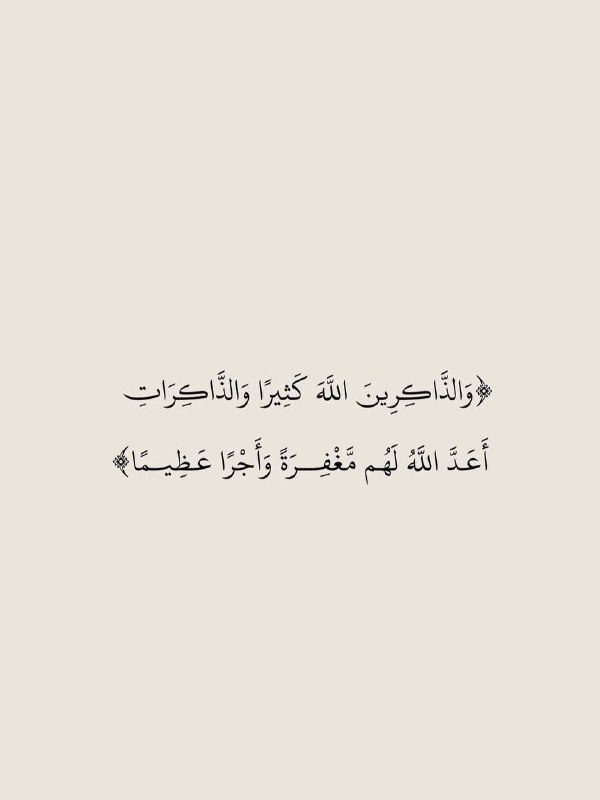 ﴿وَالذَّاكِرِينَ اللَّهَ كَثِيرًا وَالذَّاكِرَاتِ
أَعَدَّ اللَّهُ لَهُم مَّغْفِـــرَةً وَأَجْرًا عَـظِيـــمًا﴾